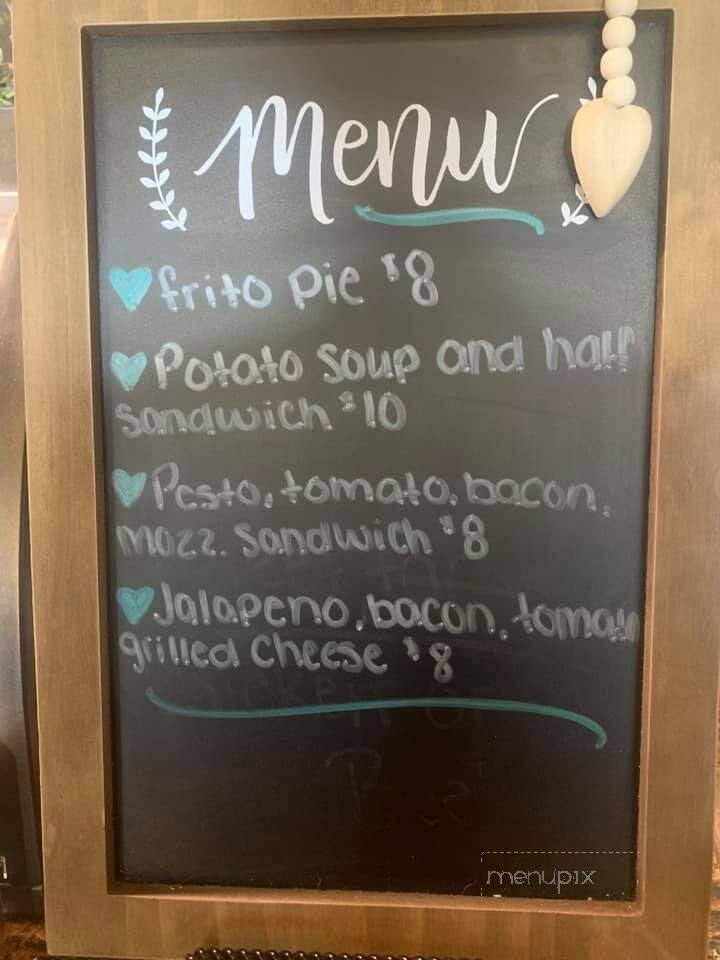 Menu
frito pie $8
Potato Soup and half
sandwich $10
Pesto, tomato, bacon,
mozz. Sandwich $8
Jalapeno, bacon, tomato
grilled Cheese $8
menupix